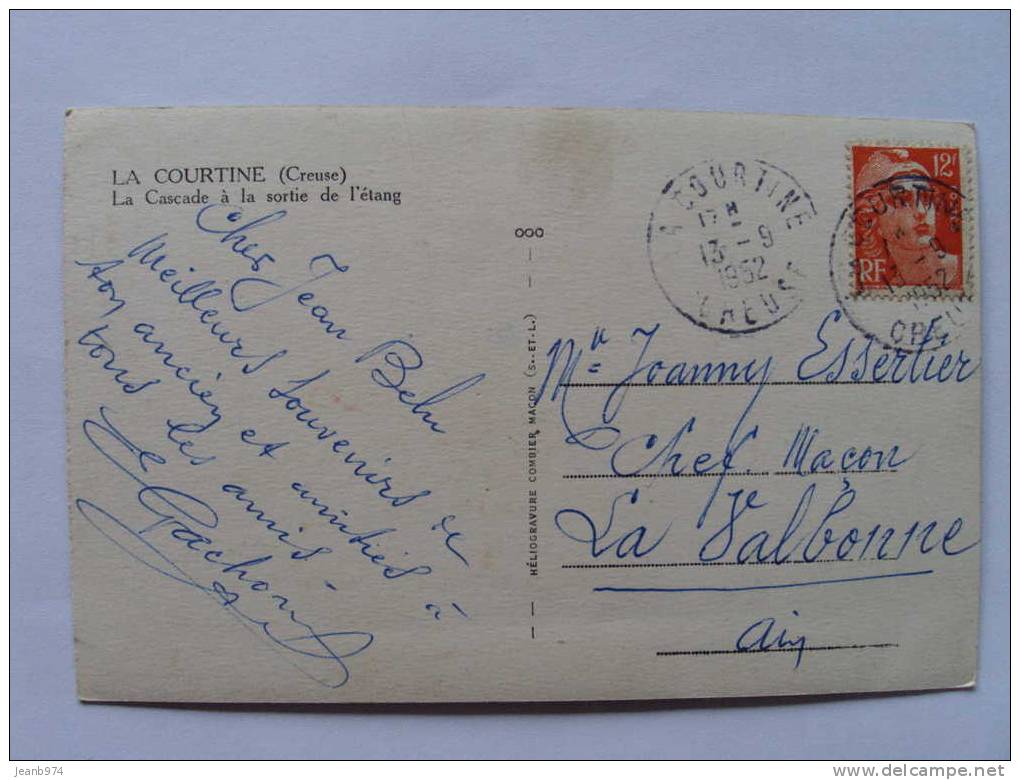 LA COURTINE (Creuse)
La Cascade à la sortie de l'étang
Cher Jean Behu
Meilleurs souvenirs de
ton ancien et amitiés à
tous les amis -
Le Pachon
ooo
HÉLIOGRAVURE COMBIER MACON (S.-ET-L.)
LA COURTINE
17 H
13 - 9
1952
CREUSE
12F
RF
COURTINE
1952
CREU
Mr Joanny Essertier
Chef. Maçon
La Valbonne
Ain
jeanb974
http://www.delcampe.net